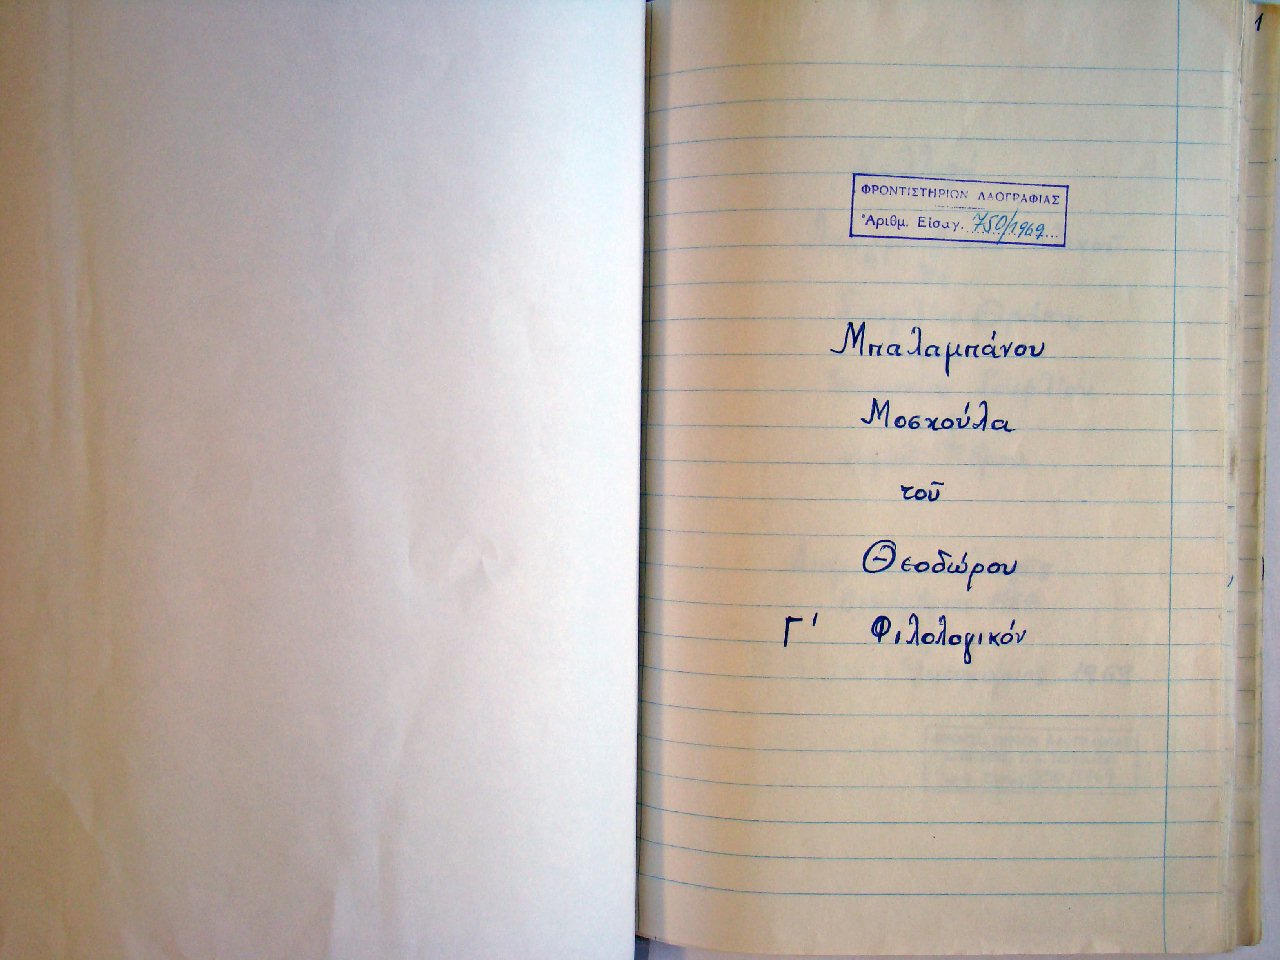 1
ΦΡΟΝΤΙΣΤΗΡΙΟΝ ΛΑΟΓΡΑΦΙΑΣ
Ἀριθμ. Εἰσαγ. 750/1969
Μπαλαμπάνου
Μοσχούλα
τοῦ
Θεοδώρου
Γ' Φιλολογικόν